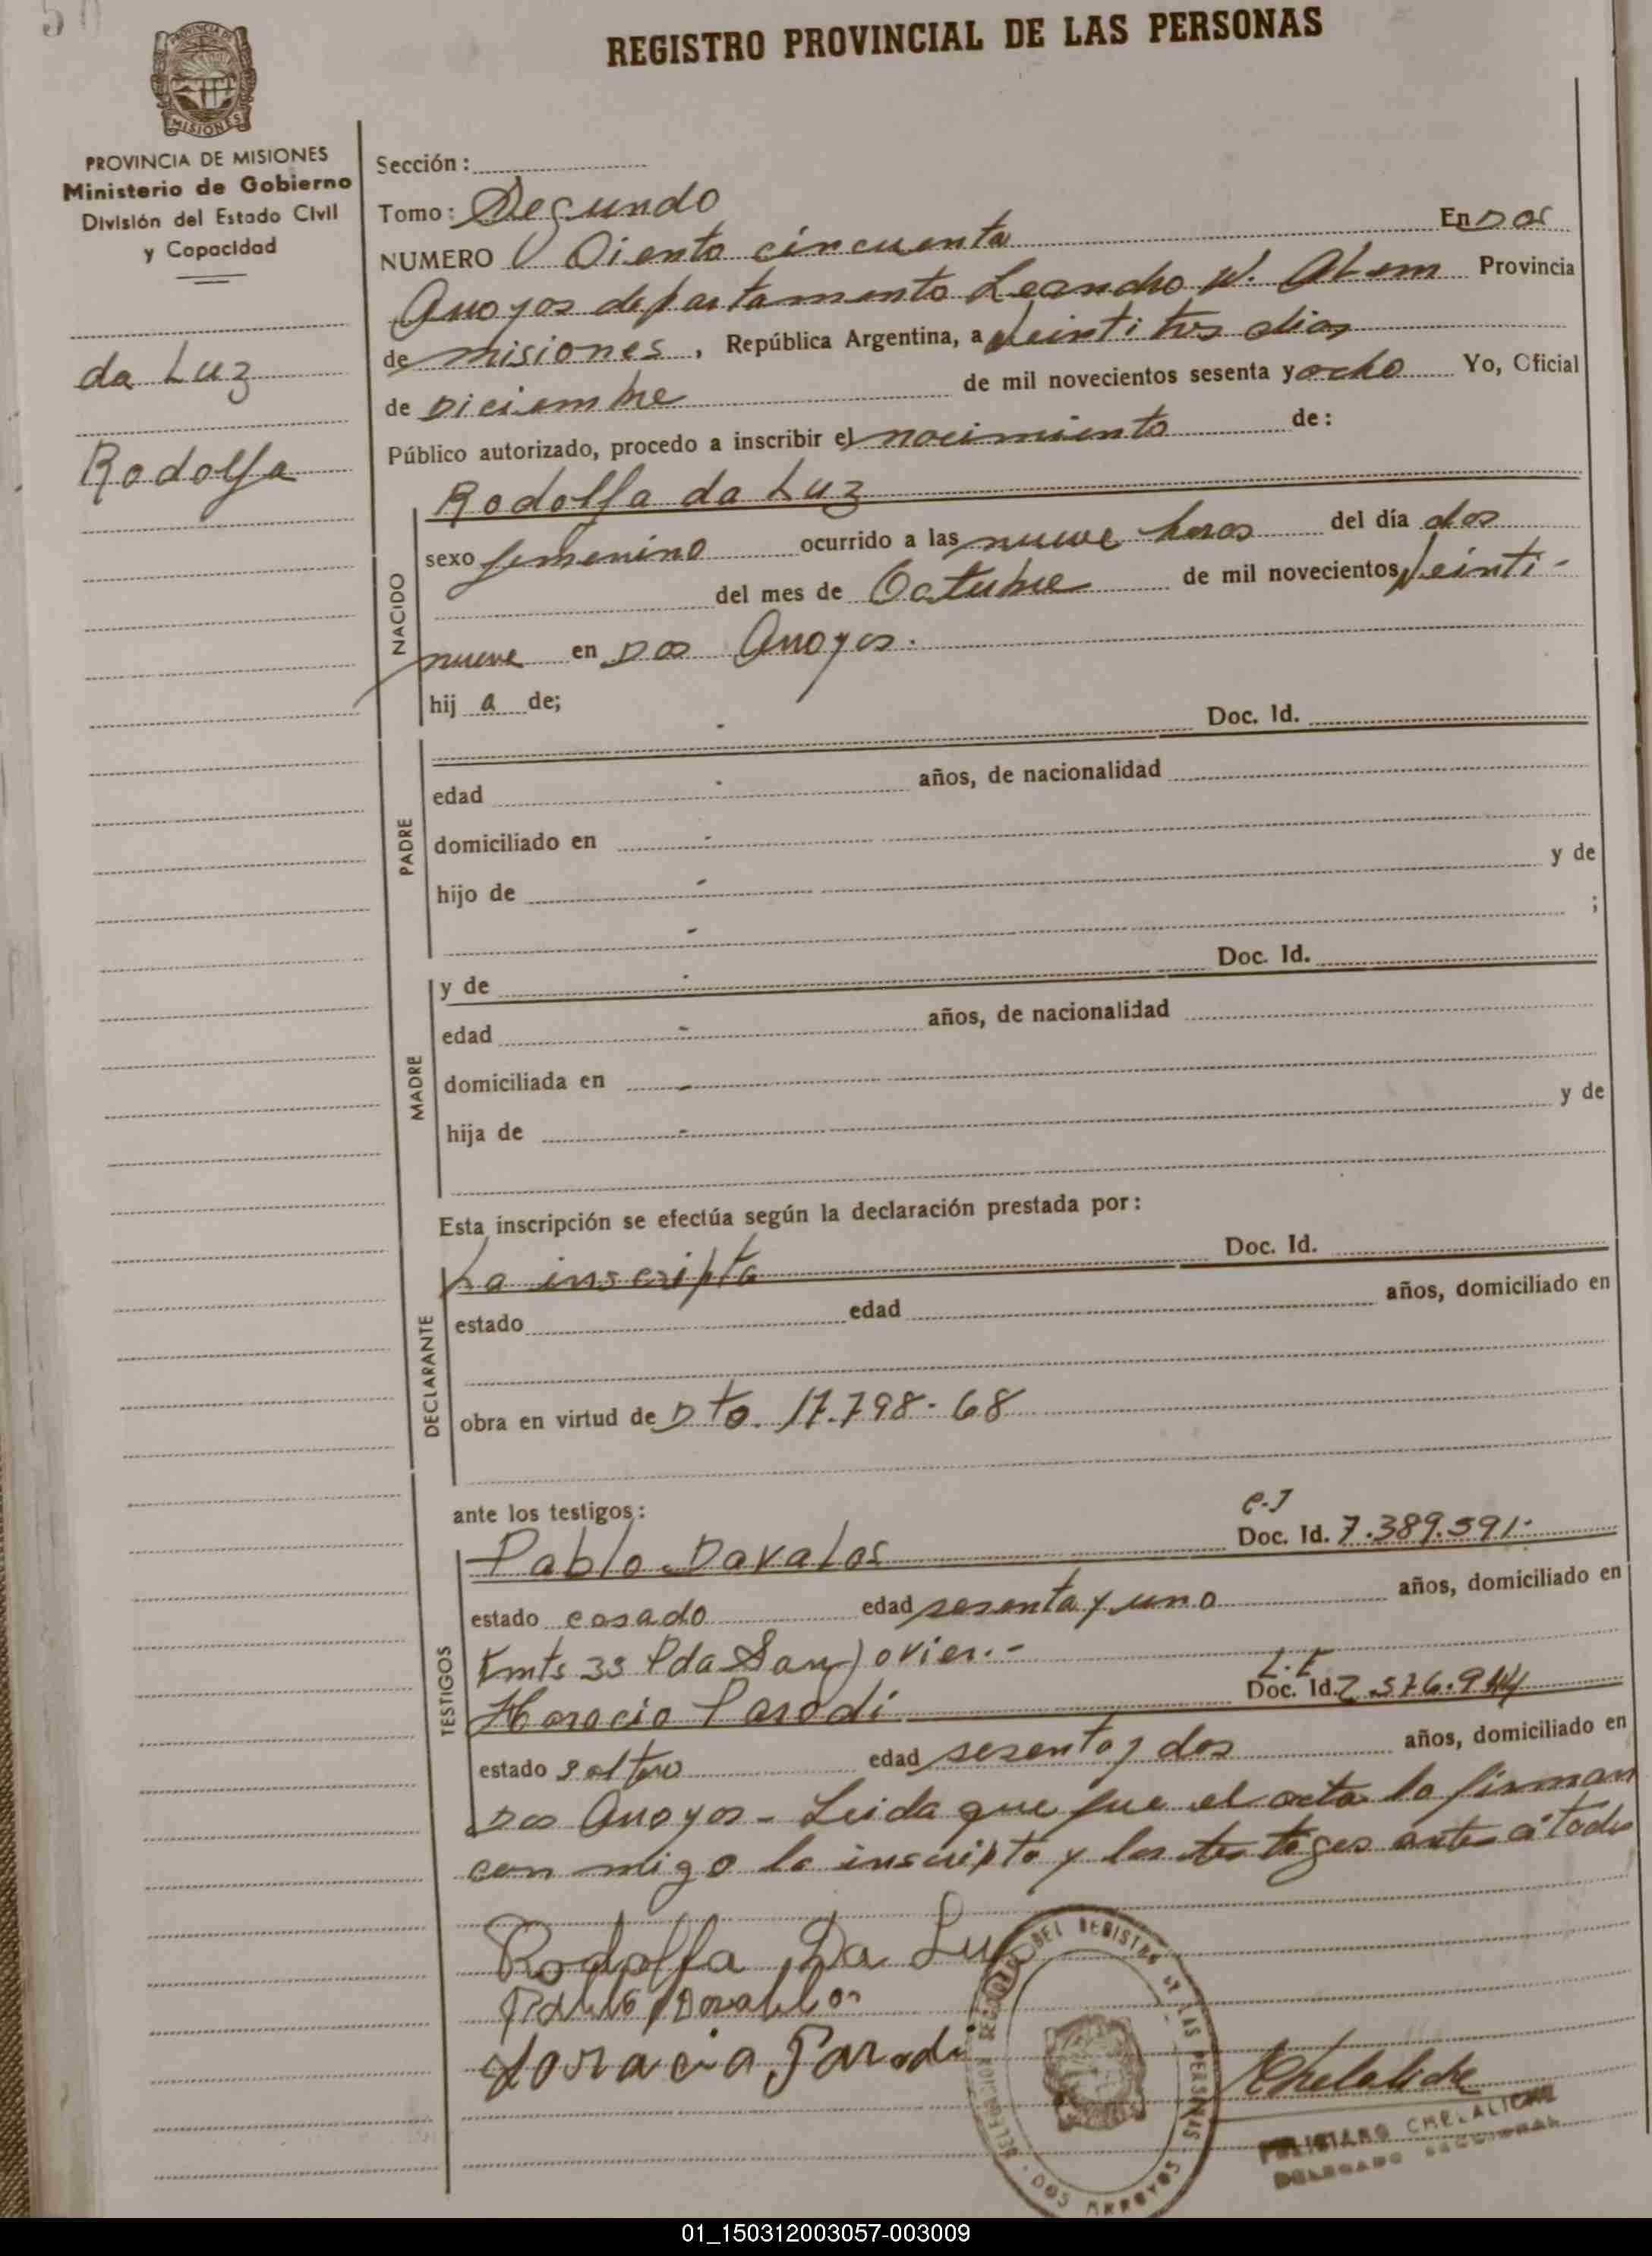 REGISTRO PROVINCIAL DE LAS PERSONAS
MISIONES
PROVINCIA DE MISIONES
Ministerio de Gobierno
División del Estado Civil
y Capacidad
da Luz
Rodolfa
Sección:
Tomo: Segundo
NUMERO Ciento cincuenta En Dos
Arroyos departamento Leandro N. Alem Provincia
de misiones, República Argentina, a Veintitres dias
de Diciembre de mil novecientos sesenta y ocho Yo, Oficial
Público autorizado, procedo a inscribir el nacimiento de:
Rodolfa da Luz
NACIDO
sexo femenino ocurrido a las nueve horas del día dos
del mes de Octubre de mil novecientos Veinti-
nueve en Dos Arroyos.
hij a de;
PADRE
Doc. Id.
edad años, de nacionalidad
domiciliado en
hijo de y de
;
MADRE
y de Doc. Id.
edad años, de nacionalidad
domiciliada en
hija de y de
Esta inscripción se efectúa según la declaración prestada por:
DECLARANTE
La inscripta Doc. Id.
estado edad años, domiciliado en
obra en virtud de Dto. 17.798-68
ante los testigos:
C.I
TESTIGOS
Pablo Davalos Doc. Id. 7.389.591.
estado casado edad sesenta y uno años, domiciliado en
Kmts 33 Pda San Javier.-
L.E
Horacio Parodi Doc. Id. 2.576.944
estado soltero edad sesenta y dos años, domiciliado en
Dos Arroyos - Leida que fue el acta la firman
con migo la inscripta y los testigos antes citados
Rodolfa Da Luz
Pablo Davalos
Horacio Parodi
DEL REGISTRO DE LAS PERSONAS
DOS ARROYOS
Chelaliche
FELICIANO CHELALICHE
DELEGADO SECCIONAL
01_150312003057-003009